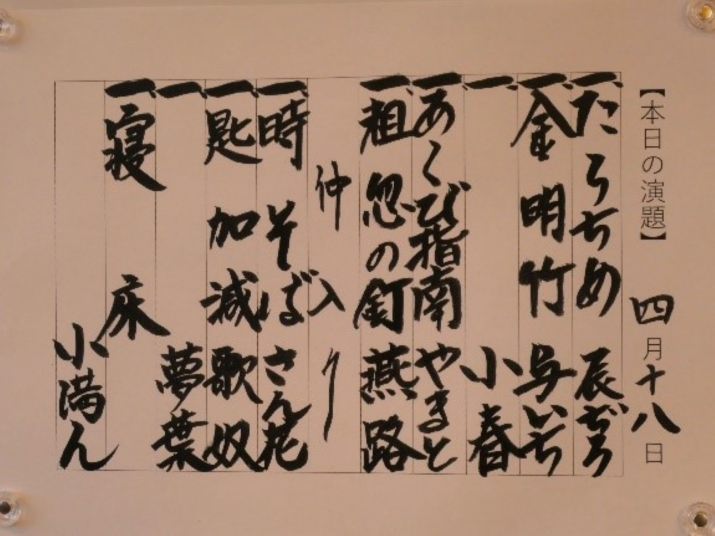 【本日の演題】 四月十八日
一、たらちめ 辰じろ
一、金明竹 与いち
一、 小春
一、あくび指南 やまと
一、粗忽の釘 燕路
仲入り
一、時そば さん花
一、匙加減 歌奴
一、 夢葉
一、寝床
小満ん